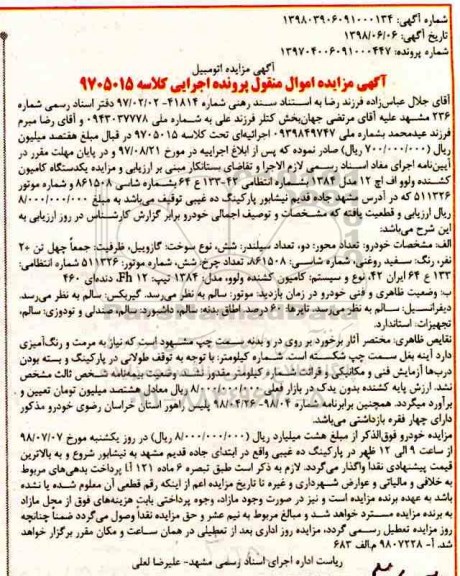 شماره آگهی: ۱۳۹۸۰۳۹۰۶۰۹۱۰۰۰۱۳۴
تاریخ آگهی: ۱۳۹۸/۰۶/۰۶
شماره پرونده: ۱۳۹۷۰۴۰۰۶۰۹۱۰۰۰۴۴۷
آگهی مزایده اتومبیل
آگهی مزایده اموال منقول پرونده اجرایی کلاسه ۹۷۰۵۰۱۵
آقای جلال عباس‌زاده فرزند رضا به استناد سند رهنی شماره ۴۱۸۱۴- ۹۷/۰۲/۰۲ دفتر اسناد رسمی شماره
۲۳۶ مشهد علیه آقای مرتضی جهان‌بخش کتلر فرزند علی به شماره ملی ۰۹۴۳۰۳۷۷۷۸ و آقای رضا میرم
فرزند عیدمحمد بشماره ملی ۰۹۳۹۸۴۹۷۴۷ اجرائیه‌ای تحت کلاسه ۹۷۰۵۰۱۵ در قبال مبلغ هفتصد میلیون
ریال (۷۰۰/۰۰۰/۰۰۰ ریال) صادر نموده که پس از ابلاغ اجراییه در مورخ ۹۷/۰۸/۲۱ و در پایان مهلت مقرر در
آیین‌نامه اجرای مفاد اسناد رسمی لازم الاجرا و تقاضای بستانکار مبنی بر ارزیابی و مزایده یکدستگاه کامیون
کشنده ولوو اف اچ ۱۲ مدل ۱۳۸۴ بشماره انتظامی ۴۲-۱۳۳ ع ۶۴ بشماره شاسی ۸۶۱۵۰۸ و شماره موتور
۵۱۱۳۲۶ که در آدرس مشهد جاده قدیم نیشابور پارکینگ ده غیبی توقیف می‌باشد به مبلغ ۸/۰۰۰/۰۰۰/۰۰۰
ریال ارزیابی و قطعیت یافته که مشخصات و توصیف اجمالی خودرو برابر گزارش کارشناس در روز ارزیابی به
این شرح می‌باشد:
الف: مشخصات خودرو: تعداد محور: دو، تعداد سیلندر: شش، نوع سوخت: گازوییل، ظرفیت: جمعاً چهل تن +۲
نفر، رنگ: سفید روغنی، شماره شاسی: ۸۶۱۵۰۸، تعداد چرخ: شش، شماره موتور: ۵۱۱۳۲۶ شماره انتظامی:
۱۳۳ ع ۶۴ ایران ۴۲، نوع و سیستم: کامیون کشنده ولوو، مدل: ۱۳۸۴ تیپ: Fh ۱۲، دنده‌ای ۴۶۰
ب: وضعیت ظاهری و فنی خودرو در زمان بازدید: موتور: سالم به نظر می‌رسد. گیربکس: سالم به نظر می‌رسد.
دیفرانسیل: سالم به نظر می‌رسد. تایرها: ۶۰ درصد اطاق بدنه: سالم، داشبورد: سالم، صندلی و تودوزی: سالم،
تجهیزات: استاندارد.
نقایص ظاهری: مختصر آثار برخورد بر روی در و بدنه سمت چپ مشهود است که نیاز به مرمت و رنگ‌آمیزی
دارد آینه بغل سمت چپ شکسته است. شماره کیلومتر: با توجه به توقف طولانی در پارکینگ و بسته بودن
درب‌ها آزمایش فنی و مکانیکی و قرائت شماره کیلومتر مقدور نشد. وضعیت بیمه‌نامه شخص ثالث مشخص
نشد. ارزش پایه کشنده بدون یدک در بازار فعلی ۸/۰۰۰/۰۰۰/۰۰۰ ریال معادل هشتصد میلیون تومان تعیین و
برآورد میگردد. همچنین برابرنامه شماره ۹۸/۰۴- ۹۸/۰۴/۲۶ پلیس راهور استان خراسان رضوی خودرو مذکور
دارای چهار فقره بازداشتی می‌باشد.
مزایده خودرو فوق‌الذکر از مبلغ هشت میلیارد ریال (۸/۰۰۰/۰۰۰/۰۰۰ ریال) در روز یکشنبه مورخ ۹۸/۰۷/۰۷
از ساعت ۹ الی ۱۲ ظهر در پارکینگ ده غیبی واقع در ابتدای جاده قدیم مشهد به نیشابور شروع و به بالاترین
قیمت پیشنهادی نقدا واگذار می‌گردد. لازم به ذکر است طبق تبصره ۶ ماده ۱۲۱ آ.ا پرداخت بدهی‌های مربوط
به خلافی و مالیاتی و عوارض شهرداری و غیره تا تاریخ مزایده اعم از اینکه رقم قطعی آن معلوم شده یا نشده
باشد به عهده برنده مزایده است و نیز در صورت وجود مازاد، وجوه پرداختی بابت هزینه‌های فوق از محل مازاد
به برنده مزایده مسترد خواهد شد و مبالغ مربوط به نیم عشر و حق مزایده نقدا وصول می‌گردد ضمناً چنانچه
روز مزایده تعطیل رسمی گردد، مزایده روز اداری بعد از تعطیلی در همان ساعت و مکان مقرر برگزار خواهد
شد. آ- ۹۸۰۷۲۲۸ م.الف ۶۸۳
ریاست اداره اجرای اسناد رسمی مشهد- علیرضا لعلی